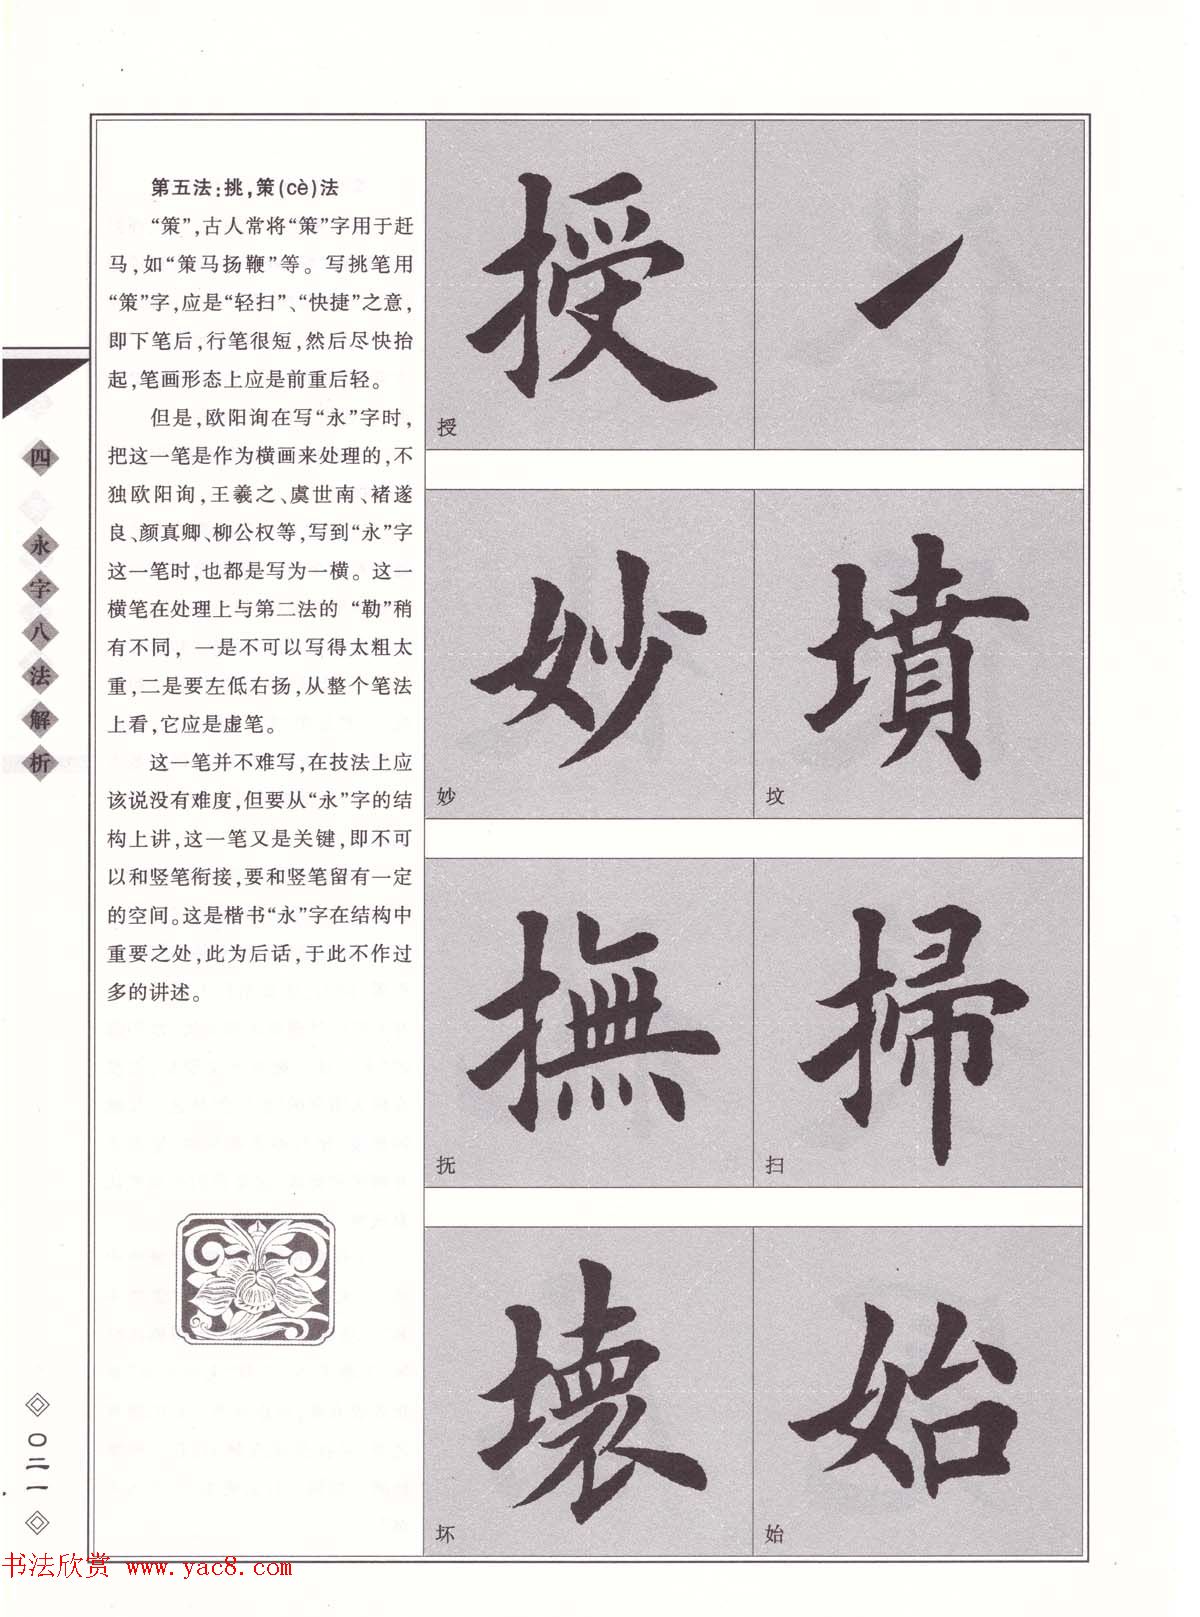 第五法：挑，策(cè)法
“策”，古人常将“策”字用于赶
马，如“策马扬鞭”等。写挑笔用
“策”字，应是“轻扫”、“快捷”之意，
即下笔后，行笔很短，然后尽快抬
起，笔画形态上应是前重后轻。
但是，欧阳询在写“永”字时，
把这一笔是作为横画来处理的，不
独欧阳询，王羲之、虞世南、褚遂
良、颜真卿、柳公权等，写到“永”字
这一笔时，也都是写为一横。这一
横笔在处理上与第二法的“勒”稍
有不同，一是不可以写得太粗太
重，二是要左低右扬，从整个笔法
上看，它应是虚笔。
这一笔并不难写，在技法上应
该说没有难度，但要从“永”字的结
构上讲，这一笔又是关键，即不可
以和竖笔衔接，要和竖笔留有一定
的空间。这是楷书“永”字在结构中
重要之处，此为后话，于此不作过
多的讲述。
授
授
妙
妙
墳
坟
撫
抚
掃
扫
壞
坏
始
始
四 永字八法解析
〇二一
书法欣赏 www.yac8.com